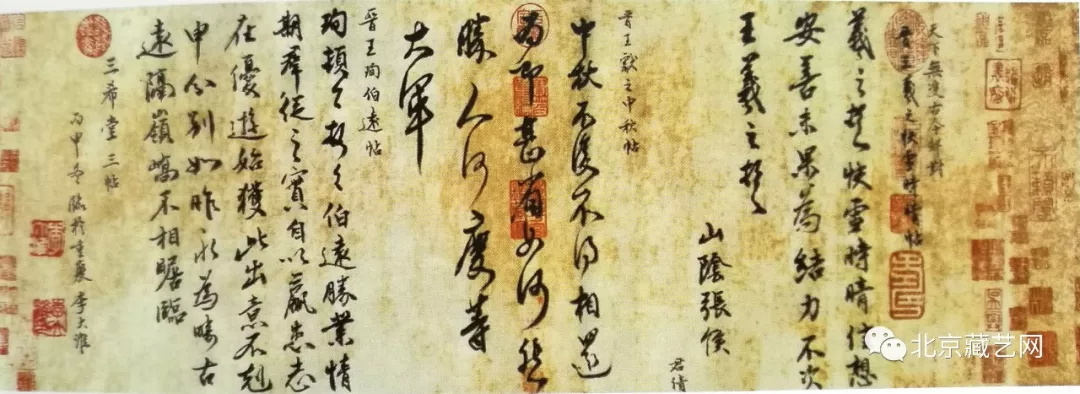 天下無雙古今鮮對
晉王羲之快雪時晴帖
羲之頓首快雪時晴佳想
安善未果為結力不次
王羲之頓首
山陰張侯
君倩
晉王獻之中秋帖
中秋不復不得相還
為即甚省如何然
勝人何慶等
大軍
晉王珣伯遠帖
珣頓々首々伯遠勝業情
期羣從之寶自以羸患志
在優遊始獲此出意不剋
申分別如昨永為疇古
遠隔嶺嶠不相瞻臨
三希堂三帖
丙申冬臨於重慶李大淮
北京藏艺网